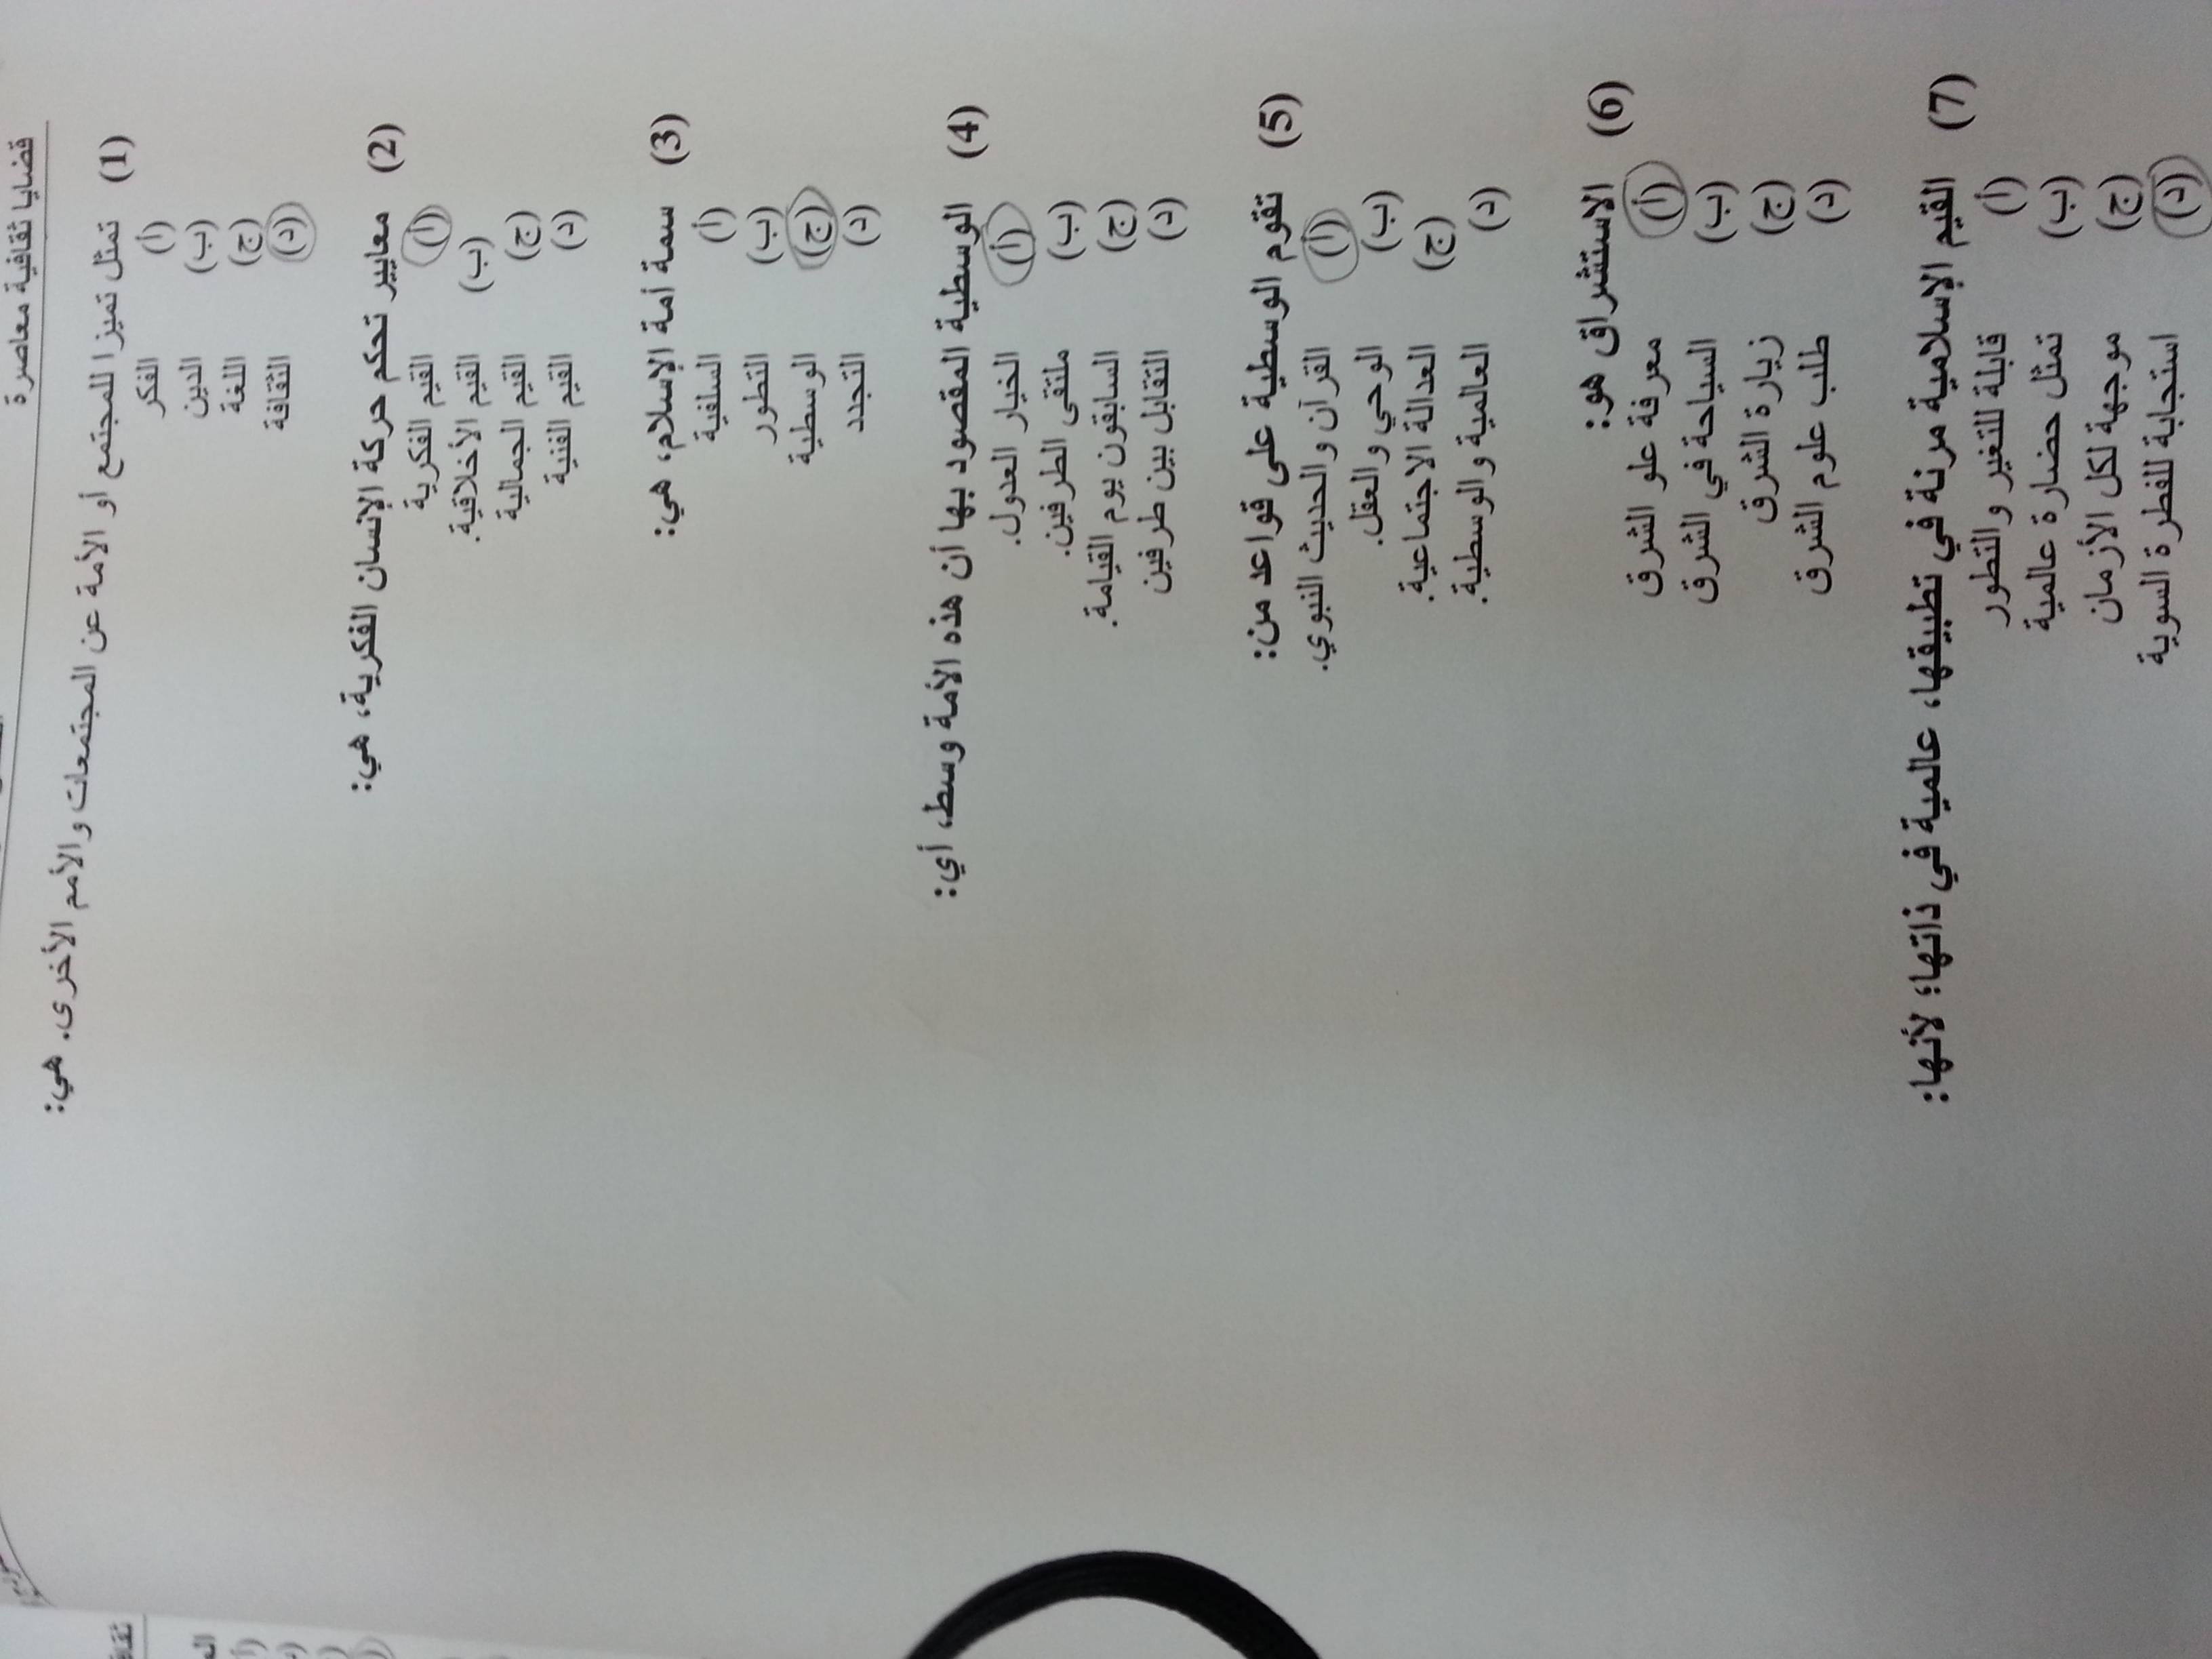 قضايا ثقافية معاصرة
(1) تمثل تميزا للمجتمع أو الأمة عن المجتمعات والأمم الأخرى. هي:
(أ) الفكر
(ب) الدين
(ج) اللغة
(د) الثقافة
(2) معايير تحكم حركة الإنسان الفكرية، هي:
(أ) القيم الفكرية
(ب) القيم الأخلاقية.
(ج) القيم الجمالية
(د) القيم الفنية
(3) سمة أمة الإسلام، هي:
(أ) السلفية
(ب) التطور
(ج) الوسطية
(د) التجدد
(4) الوسطية المقصود بها أن هذه الأمة وسط، أي:
(أ) الخيار العدول.
(ب) ملتقى الطرفين.
(ج) السابقون يوم القيامة.
(د) التقابل بين طرفين
(5) تقوم الوسطية على قواعد من:
(أ) القرآن والحديث النبوي.
(ب) الوحي والعقل.
(ج) العدالة الاجتماعية.
(د) العالمية والوسطية.
(6) الاستشراق هو:
(أ) معرفة علو الشرق
(ب) السياحة في الشرق
(ج) زيارة الشرق
(د) طلب علوم الشرق
(7) القيم الإسلامية مرنة في تطبيقها، عالمية في ذاتها؛ لأنها:
(أ) قابلة للتغير والتطور
(ب) تمثل حضارة عالمية
(ج) موجهة لكل الأزمان
(د) استجابة للفطرة السوية